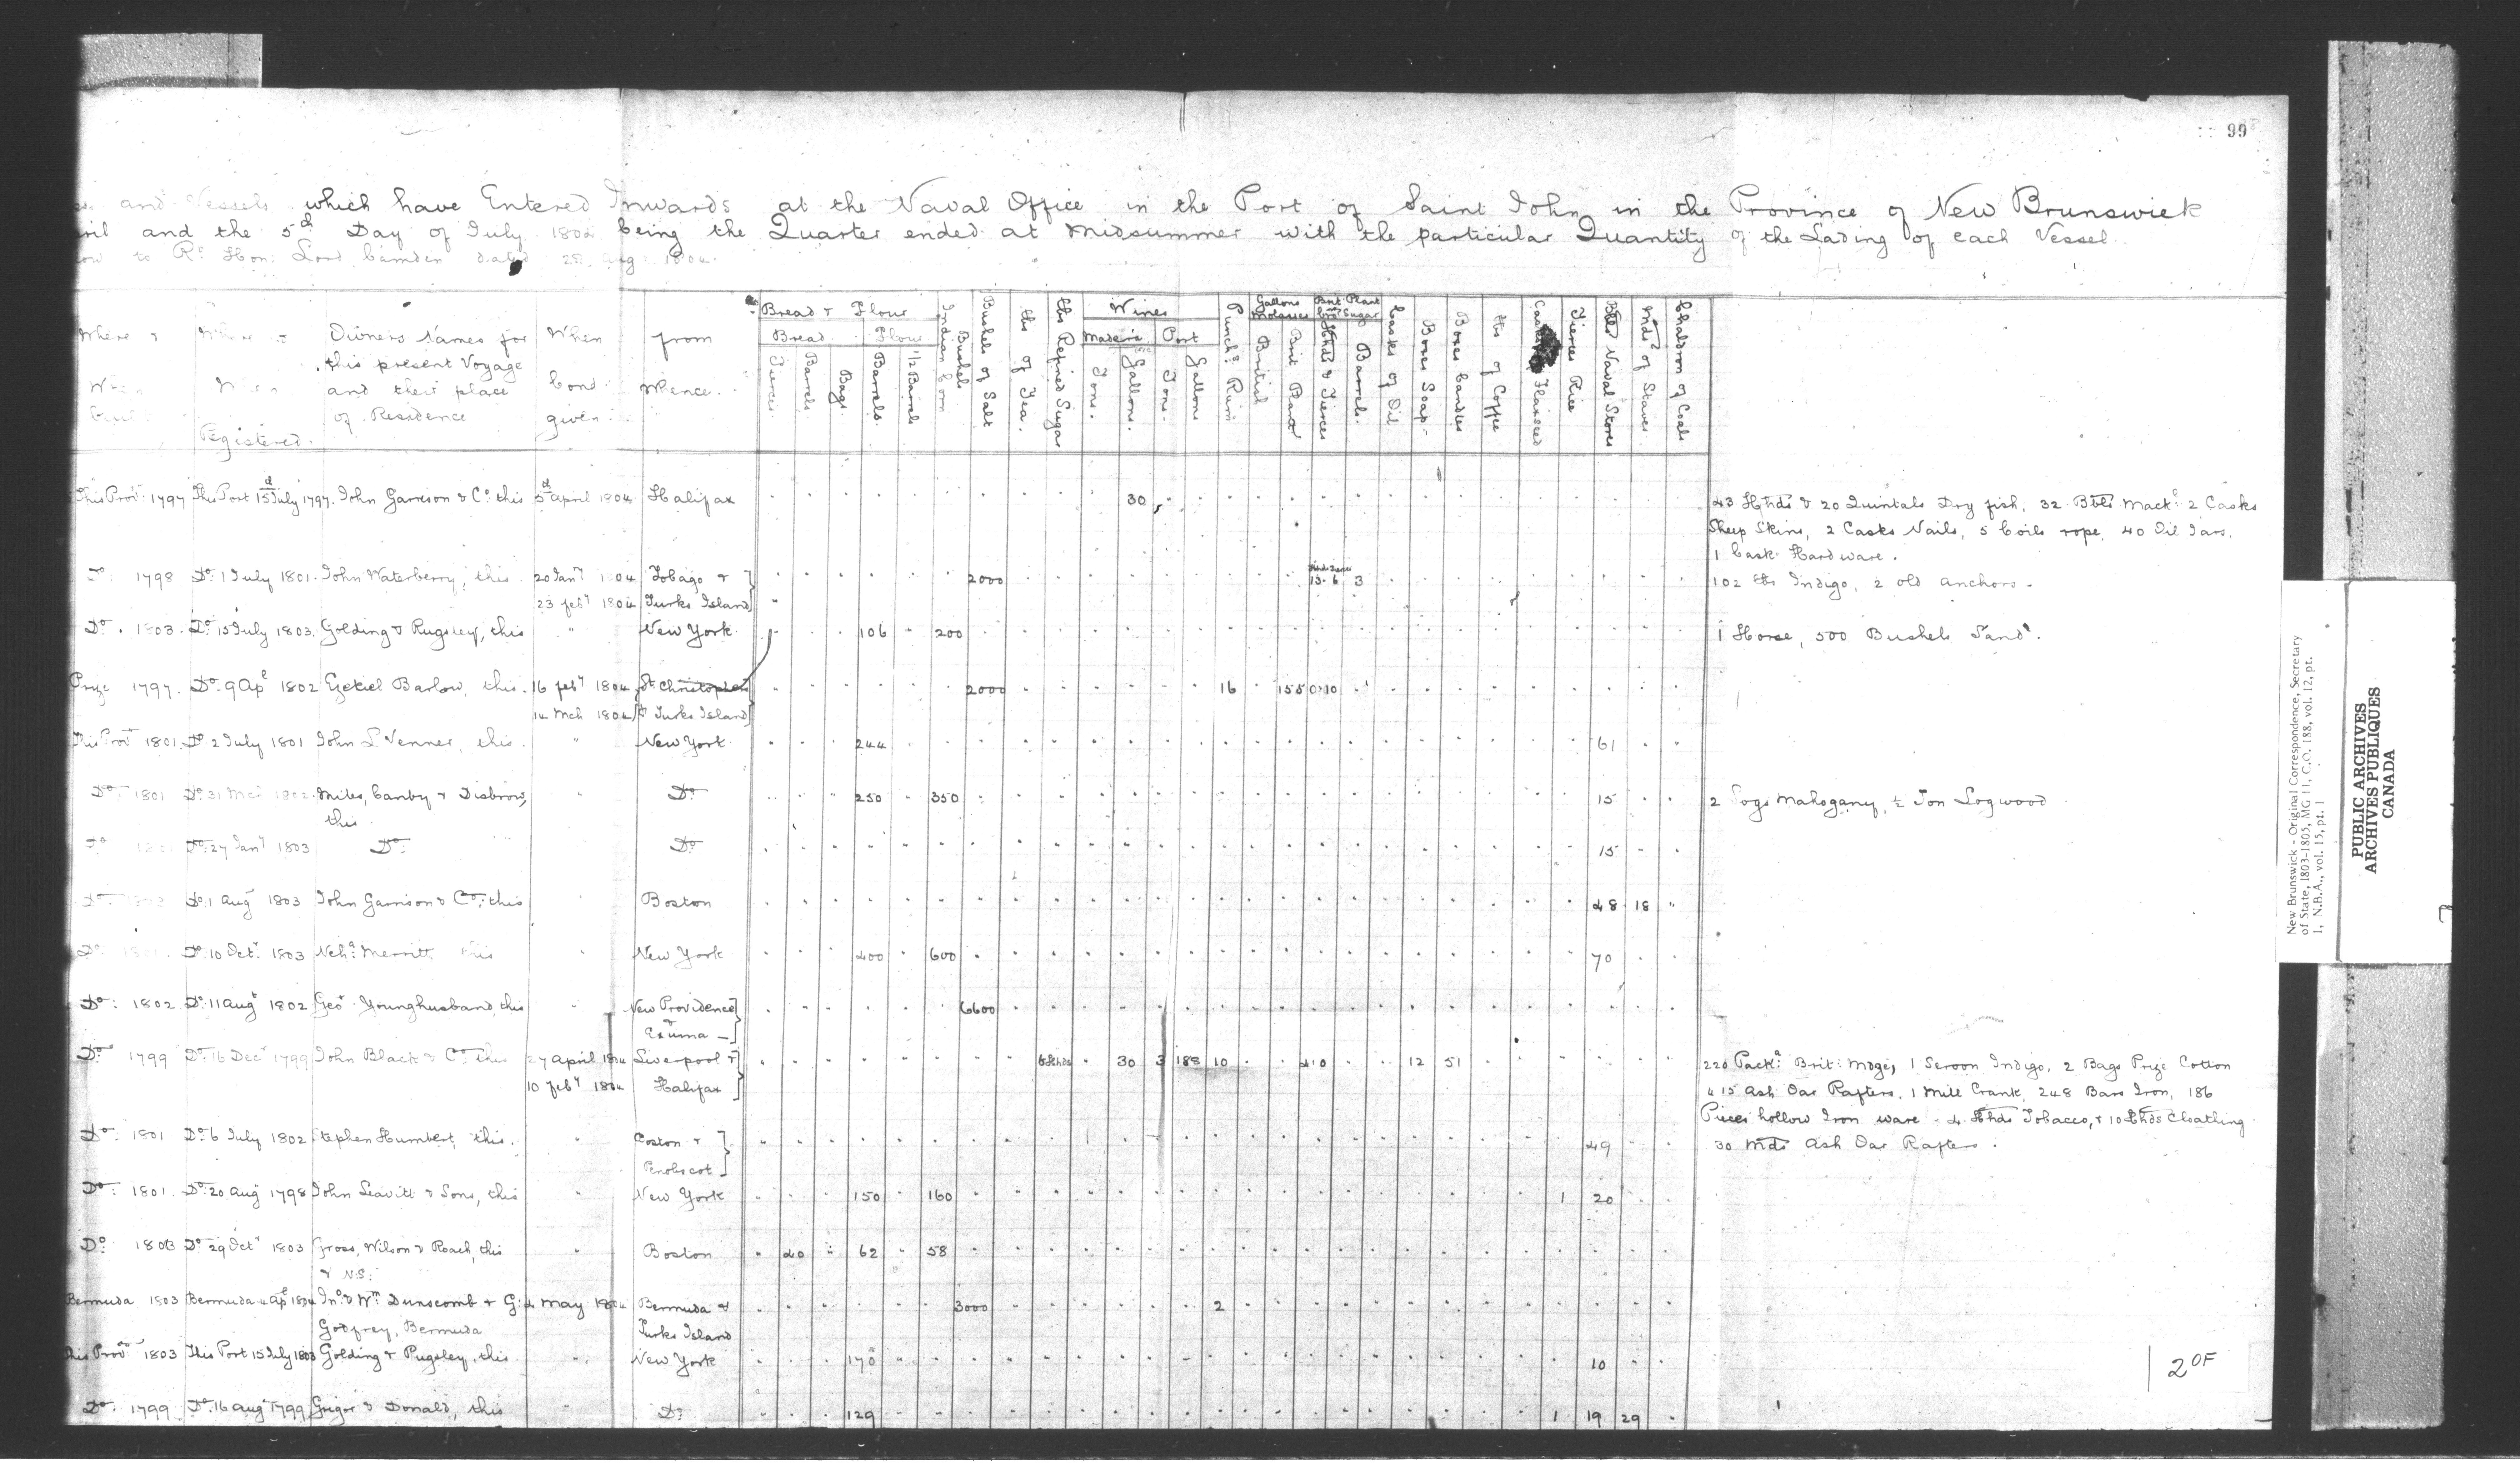 99
and Vessels which have Entered Inwards at the Naval Office in the Port of Saint John in the Province of New Brunswick
and the 5th Day of July 1804 being the Quarter ended at Midsummer with the particular Quantity of the Lading of each Vessel
to Rt Hon. Lord Camden dated 1804.
Where & When built
Where & When Registered.
Owners Names for this present Voyage and their place of Residence
When bond given
from whence.
Bread & Flour
Bread Flour
Tierces Barrels Bags Barrels 1/2 Barrels
Indian Corn Bushels
Bushels of Salt
lbs of Tea.
lbs Refined Sugar
Wines
Madeira Port
Tons. Gallons. Tons. Gallons
Punchs Rum
Gallons Molasses
British Brit Plant
Brit Plant Sugar
Hhds & Tierces Barrels.
Casks of Oil
Boxes Soap
Boxes Candles
lbs of Coffee
Casks Flaxseed
Tierces Rice
Bbls Naval Stores
Mds of Staves
Chaldron of Coals
This Prov. 1797 This Port 15 July 1797. John Garrison & Co. this 5d april 1804 Halifax 30 43 Hhds & 20 Quintals Dry fish, 32 Bbls Mackl 2 Casks
Sheep Skins, 2 Casks Nails, 5 Coils rope, 40 Oil Jars.
1 Cask Hardware.
1798 Do. 1 July 1801. John Waterberry, this 20 Jany 1804 Tobago & 2000 13. 6 3 102 lbs Indigo, 2 old anchors.
23 feby 1804 Turks Island
Do. 1803. Do. 15 July 1803. Golding & Pugsley, this " New York 106 200 1 Horse, 500 Bushels Sand.
Prize 1797. Do. 9 Apl 1802 Ezekiel Barlow, this. 16 feby 1804 St Christophers 2000 16 1550 10
14 Mch 1804 & Turks Island
This Prov 1801. Do 2 July 1801 John L Venner, this. " New York 244 61
Do. 1801 Do. 31 Mch Miles, Canby & Disbrow, " Do. 250 350 15 2 Logs Mahogany, ½ Ton Logwood
this
Do. 27 Jany 1803 Do. Do. 15
Do. Do. 1 Aug 1803 John Garrison & Co. this Boston 48 18
Do. Do. 10 Oct. 1803 Neh. Merritt this New York 400 600 70
Do. 1802 Do. 11 Augt 1802 Geo Younghusband, this New Providence 6600
& Exuma
Do. 1799 Do. 16 Decr 1799 John Black & Co. this 27 april 1804 Liverpool & 30 3 188 10 12 51 220 Packs Brit: Mdge, 1 Seroon Indigo, 2 Bags Prize Cotton
10 feby 1804 Halifax 415 Ash Oar Rafters, 1 Mill Crank, 248 Bars Iron, 186
Pieces hollow Iron ware 4 Hhds Tobacco, & 10 Hhds Cloathing
Do. 1801 Do. 6 July 1802 Stephen Humbert, this. " Boston & 49 30 Mds Ash Oar Rafters.
Penobscot
Do. 1801. Do. 20 Aug 1798 John Leavitt & Sons, this " New York 150 160 1 20
Do. 1803 Do. 29 Oct 1803 Gross, Wilson & Roach, this " Boston 40 62 58
& N.S.
Bermuda 1803 Bermuda 4 Apl 1804 Jno. & Wm Dunscomb & G: 4 May 1804 Bermuda & 3000 2
Godfrey, Bermuda Turks Island
This Prov 1803 This Port 15 July 1803 Golding & Pugsley, this " New York 170 10
Do. 1799 Do. 16 Aug 1799 Grigor & Donald, this " Do. 129 1 19 29
2 OF
New Brunswick - Original Correspondence, Secretary
of State, 1803-1805, MG 11, C.O. 188, vol. 12, pt.
1, N.B.A., vol. 15, pt. 1
PUBLIC ARCHIVES
ARCHIVES PUBLIQUES
CANADA